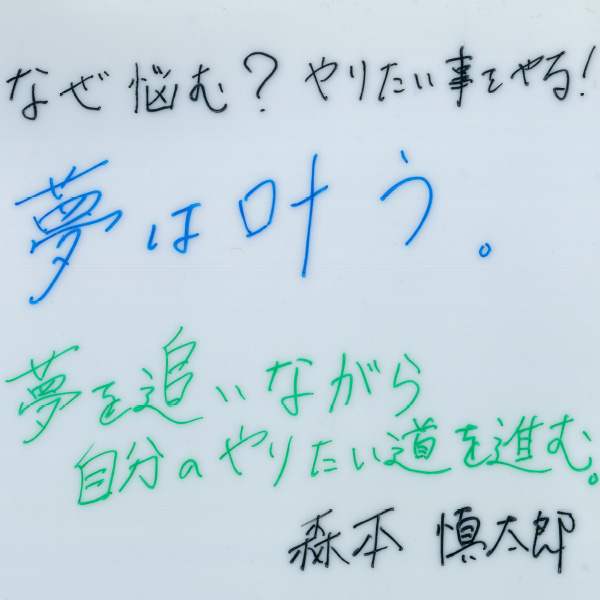 なぜ悩む？やりたい事をやる！
夢は叶う。
夢を追いながら
自分のやりたい道を進む。
森本 慎太郎